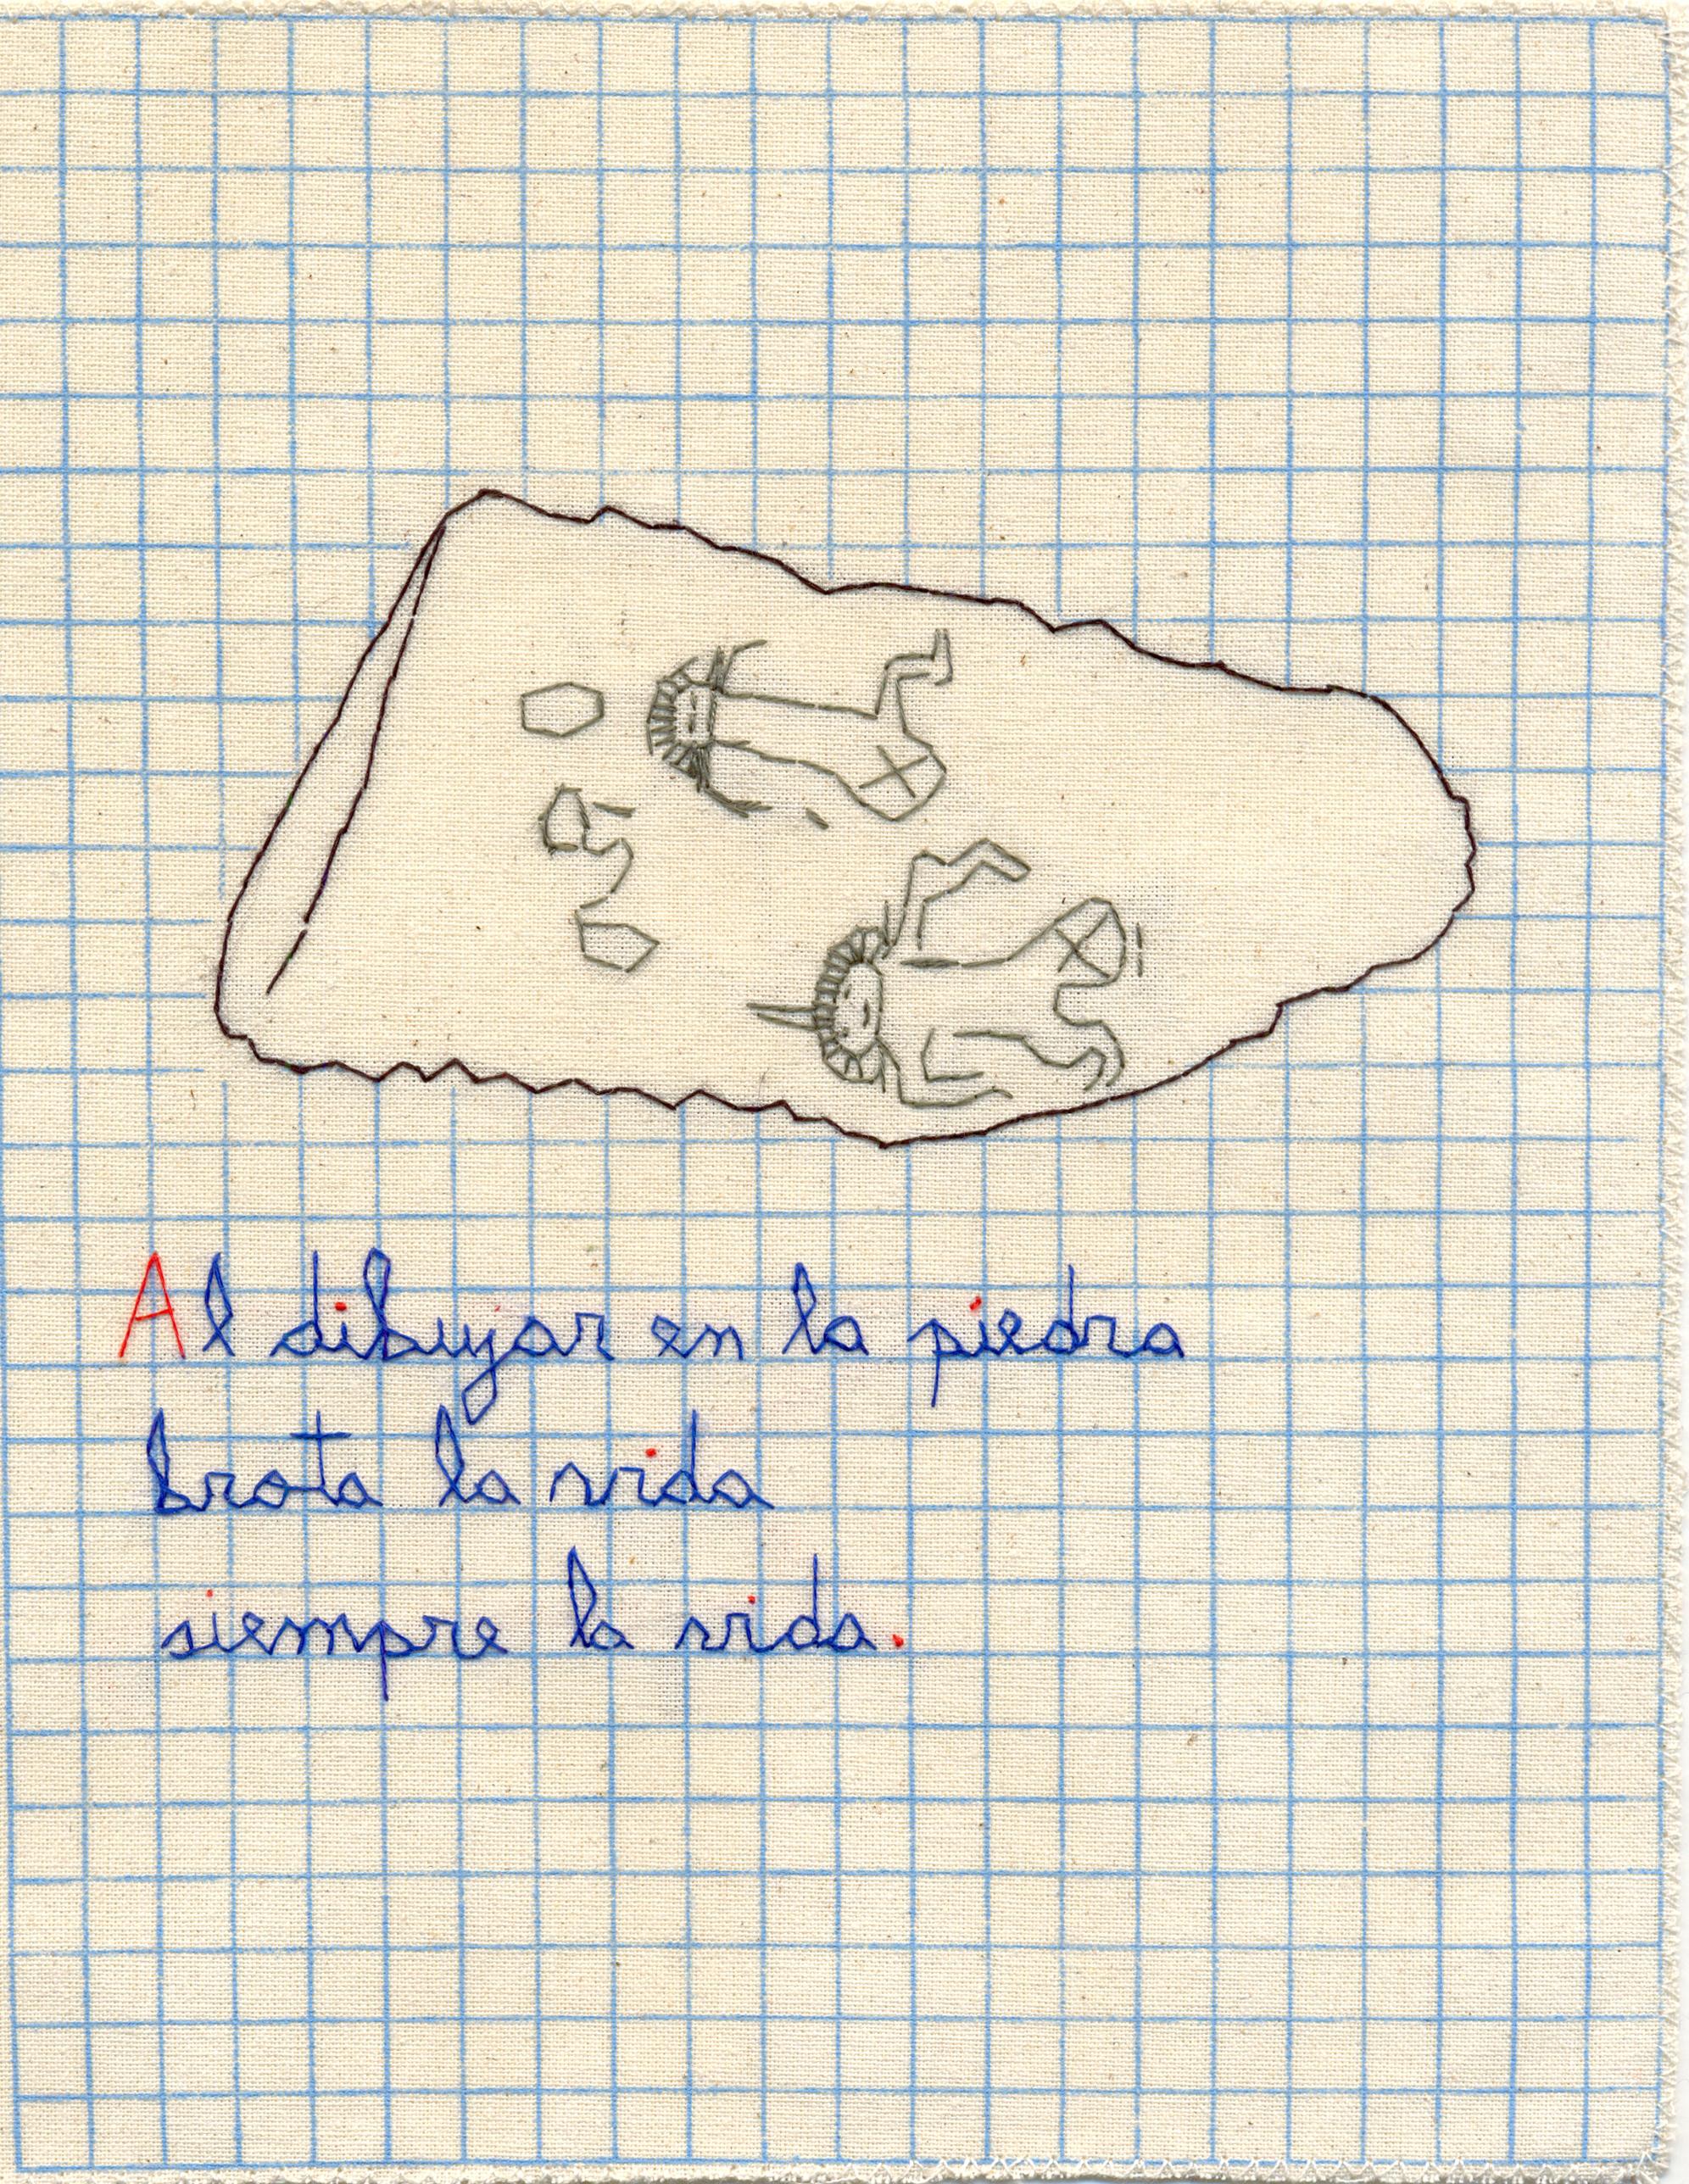 Al dibujar en la piedra
brota la vida
siempre la vida.